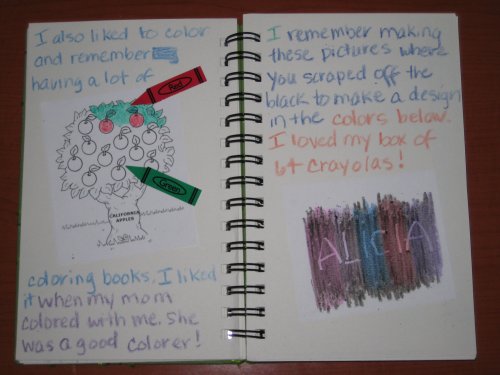 I also liked to color
and remember
having a lot of
Red
Green
CALIFORNIA
APPLES
coloring books. I liked
it when my mom
colored with me. She
was a good colorer!
I remember making
these pictures where
you scraped off the
black to make a design
in the colors below.
I loved my box of
64 crayolas!
ALICIA